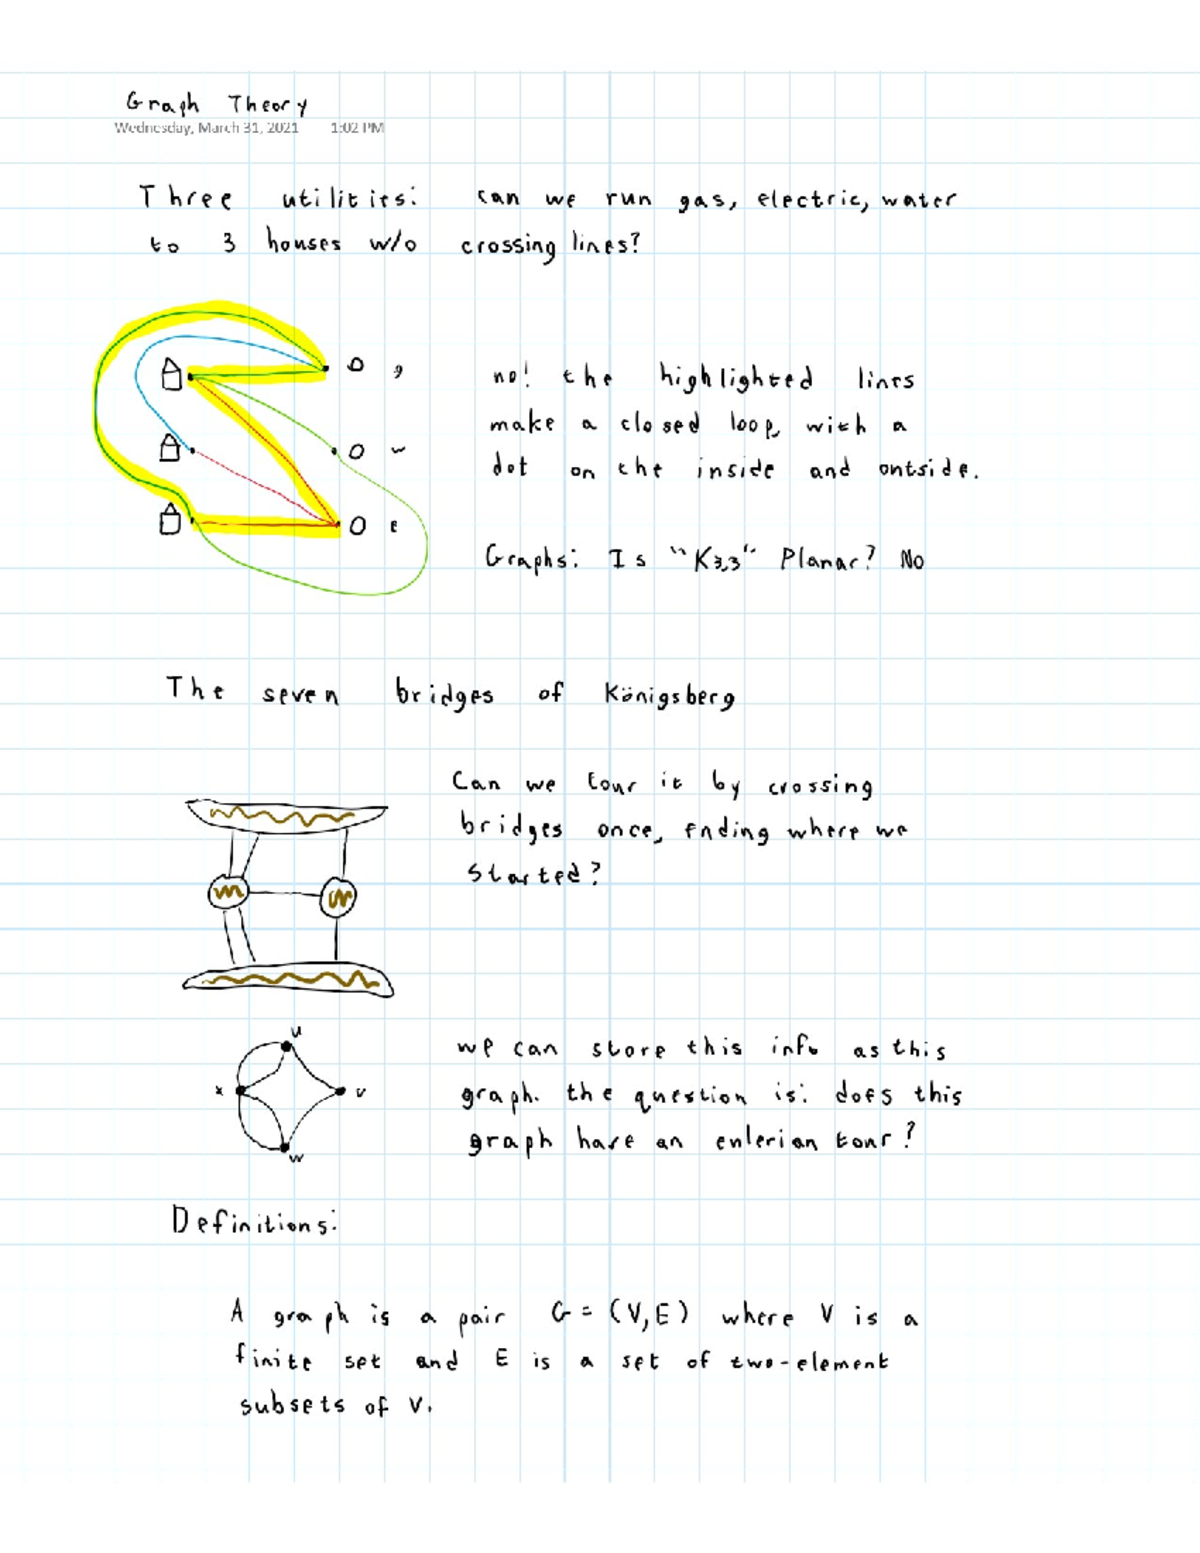 Graph Theory
Wednesday, March 31, 2021 1:02 PM
Three utilities: can we run gas, electric, water
to 3 houses w/o crossing lines?
g
no! the highlighted lines
make a closed loop, with a
w
dot on the inside and outside.
E
Graphs: Is "K3,3" Planar? No
The seven bridges of Königsberg
Can we tour it by crossing
bridges once, ending where we
started?
u
we can store this info as this
x
v
graph. the question is: does this
graph have an eulerian tour?
w
Definitions:
A graph is a pair G = (V,E) where V is a
finite set and E is a set of two-element
subsets of V.